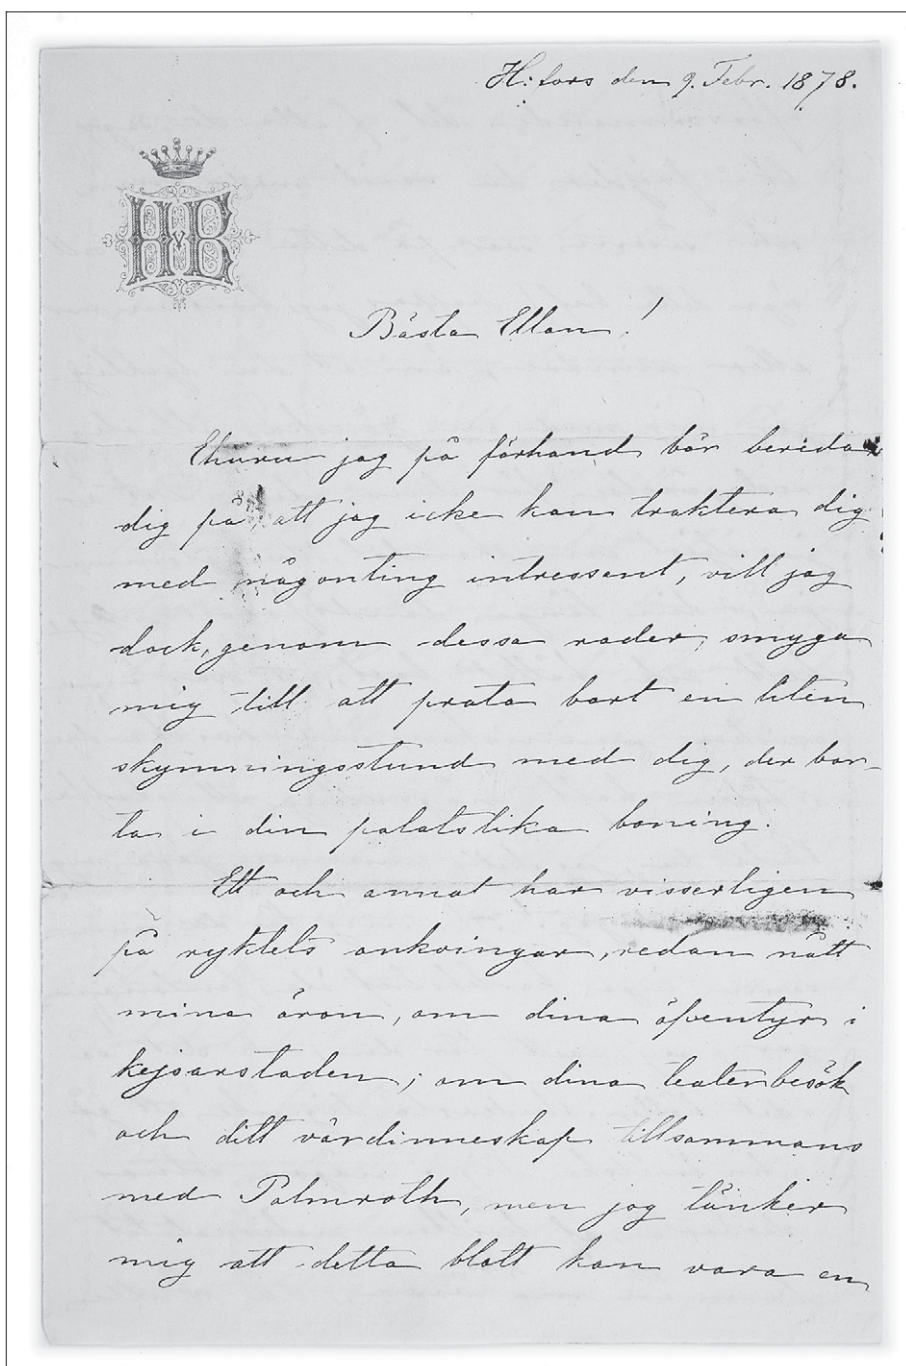 H:fors den 9. Febr. 1878.
HvB
Bästa Ellan!
Ehuru jag på förhand bör bereda
dig på, att jag icke kan traktera dig
med någonting intressent, vill jag
dock, genom dessa rader, smyga
mig till att prata bort en liten
skymningsstund med dig, der bor-
ta i din palatslika boning.
Ett och annat har visserligen
på ryktets ankvingar, redan nått
mina öron, om dina äfventyr i
kejsarstaden; om dina teaterbesök
och ditt värdinneskap tillsammans
med Palmroth, men jag tänker
mig att detta blott kan vara en